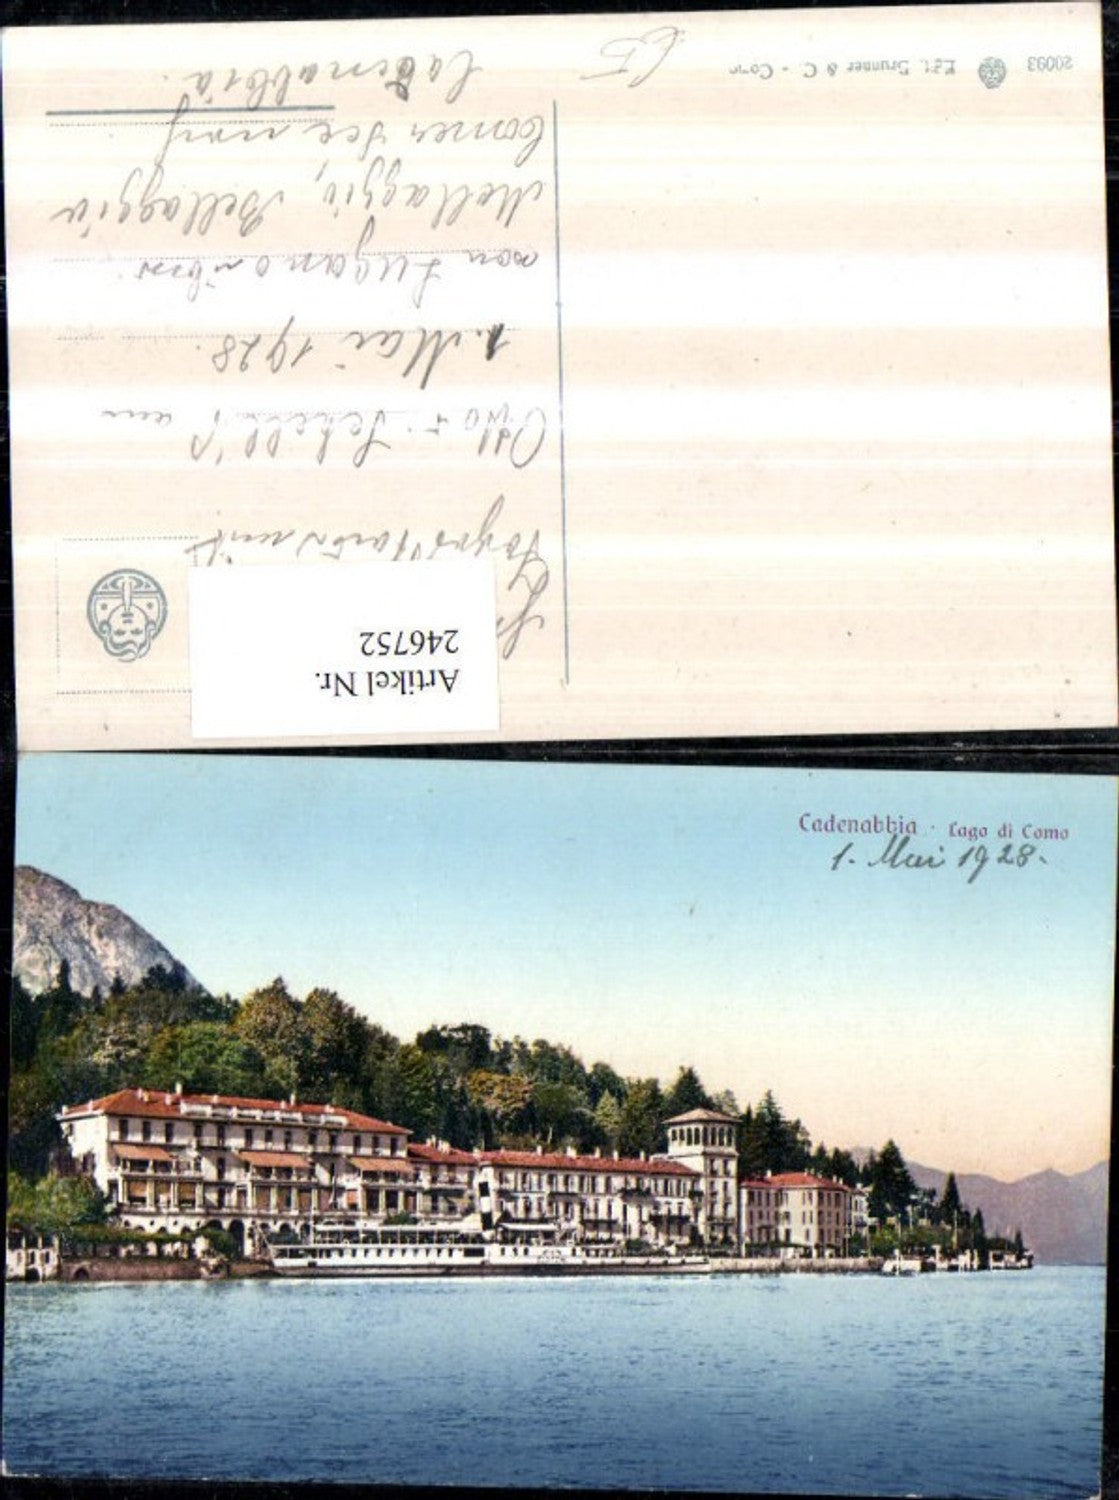 Artikel Nr.
246752
mit
Otto
1. Mai 1928.
von Lugano über
Mellaggio, Bellaggio
Comer See nach
Cadenabbia.
20093
Brunner & C. - Como
Cadenabbia · Lago di Como
1. Mai 1928.